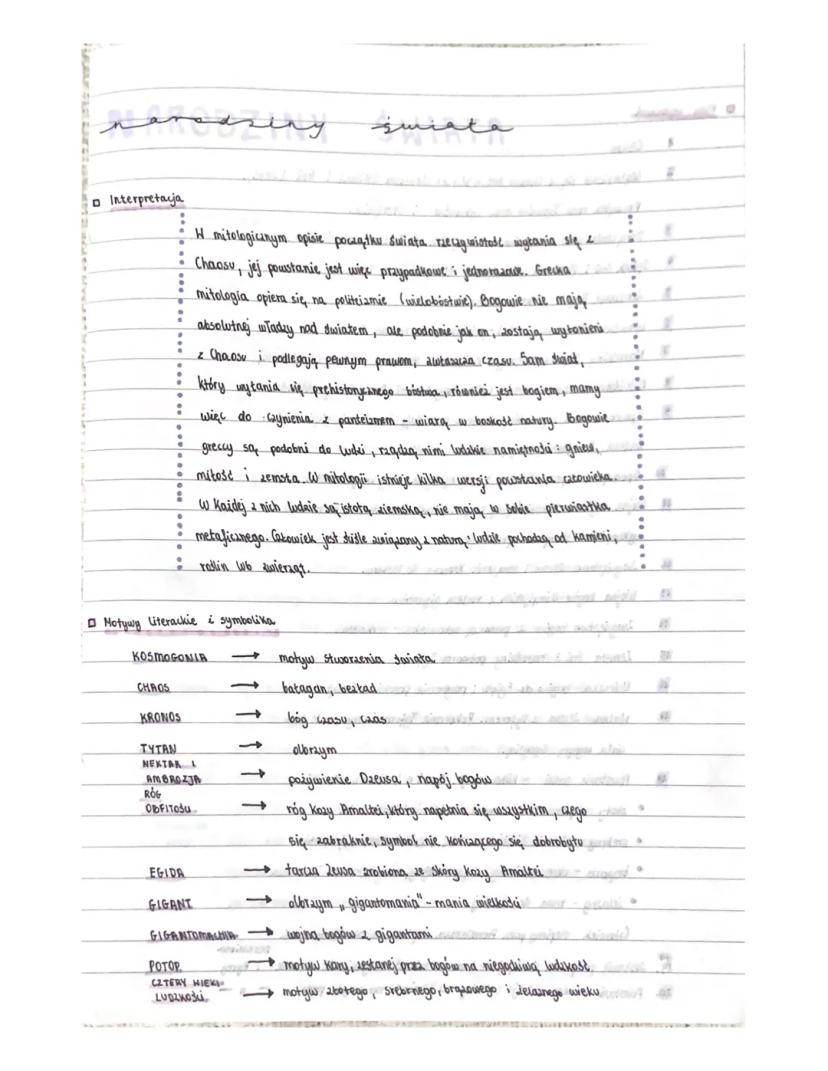 narodziny świata
Interpretacja
W mitologicznym opisie początku świata rzeczywistość wyłania się z
Chaosu, jej powstanie jest więc przypadkowe i jednorazowe. Grecka
mitologia opiera się na politeizmie (wielobóstwie). Bogowie nie mają
absolutnej władzy nad światem, ale podobnie jak on, zostają wyłonieni
z Chaosu i podlegają pewnym prawom, zwłaszcza czasu. Sam świat,
który wyłania się prehistorycznego bóstwa, również jest bogiem, mamy
więc do czynienia z panteizmem - wiarą w boskość natury. Bogowie
greccy są podobni do ludzi, rządzą nimi ludzkie namiętności: gniew,
miłość i zemsta. W mitologii istnieje kilka wersji powstania człowieka.
W każdej z nich ludzie są istotą ziemską, nie mają w sobie pierwiastka
metafizycznego. Człowiek jest ściśle związany z naturą: ludzie pochodzą od kamieni,
roślin lub zwierząt.
Motywy literackie i symbolika
KOSMOGONIA → motyw stworzenia świata
CHAOS → bałagan, bezład
KRONOS → bóg czasu, czas
TYTAN → olbrzym
NEKTAR I
AMBROZJA → pożywienie Dzeusa, napój bogów
RÓG
OBFITOŚCI → róg kozy Amaltei, który napełnia się wszystkim, czego
się zabraknie, symbol nie kończącego się dobrobytu
EGIDA → tarcza Zeusa zrobiona ze skóry kozy Amaltei
GIGANT → olbrzym „gigantomania" - mania wielkości
GIGANTOMACHIA → wojna bogów z gigantami
POTOP → motyw kary, zesłanej przez bogów na niegodziwą ludzkość
CZTERY WIEKI
LUDZKOŚCI → motyw złotego, srebrnego, brązowego i żelaznego wieku